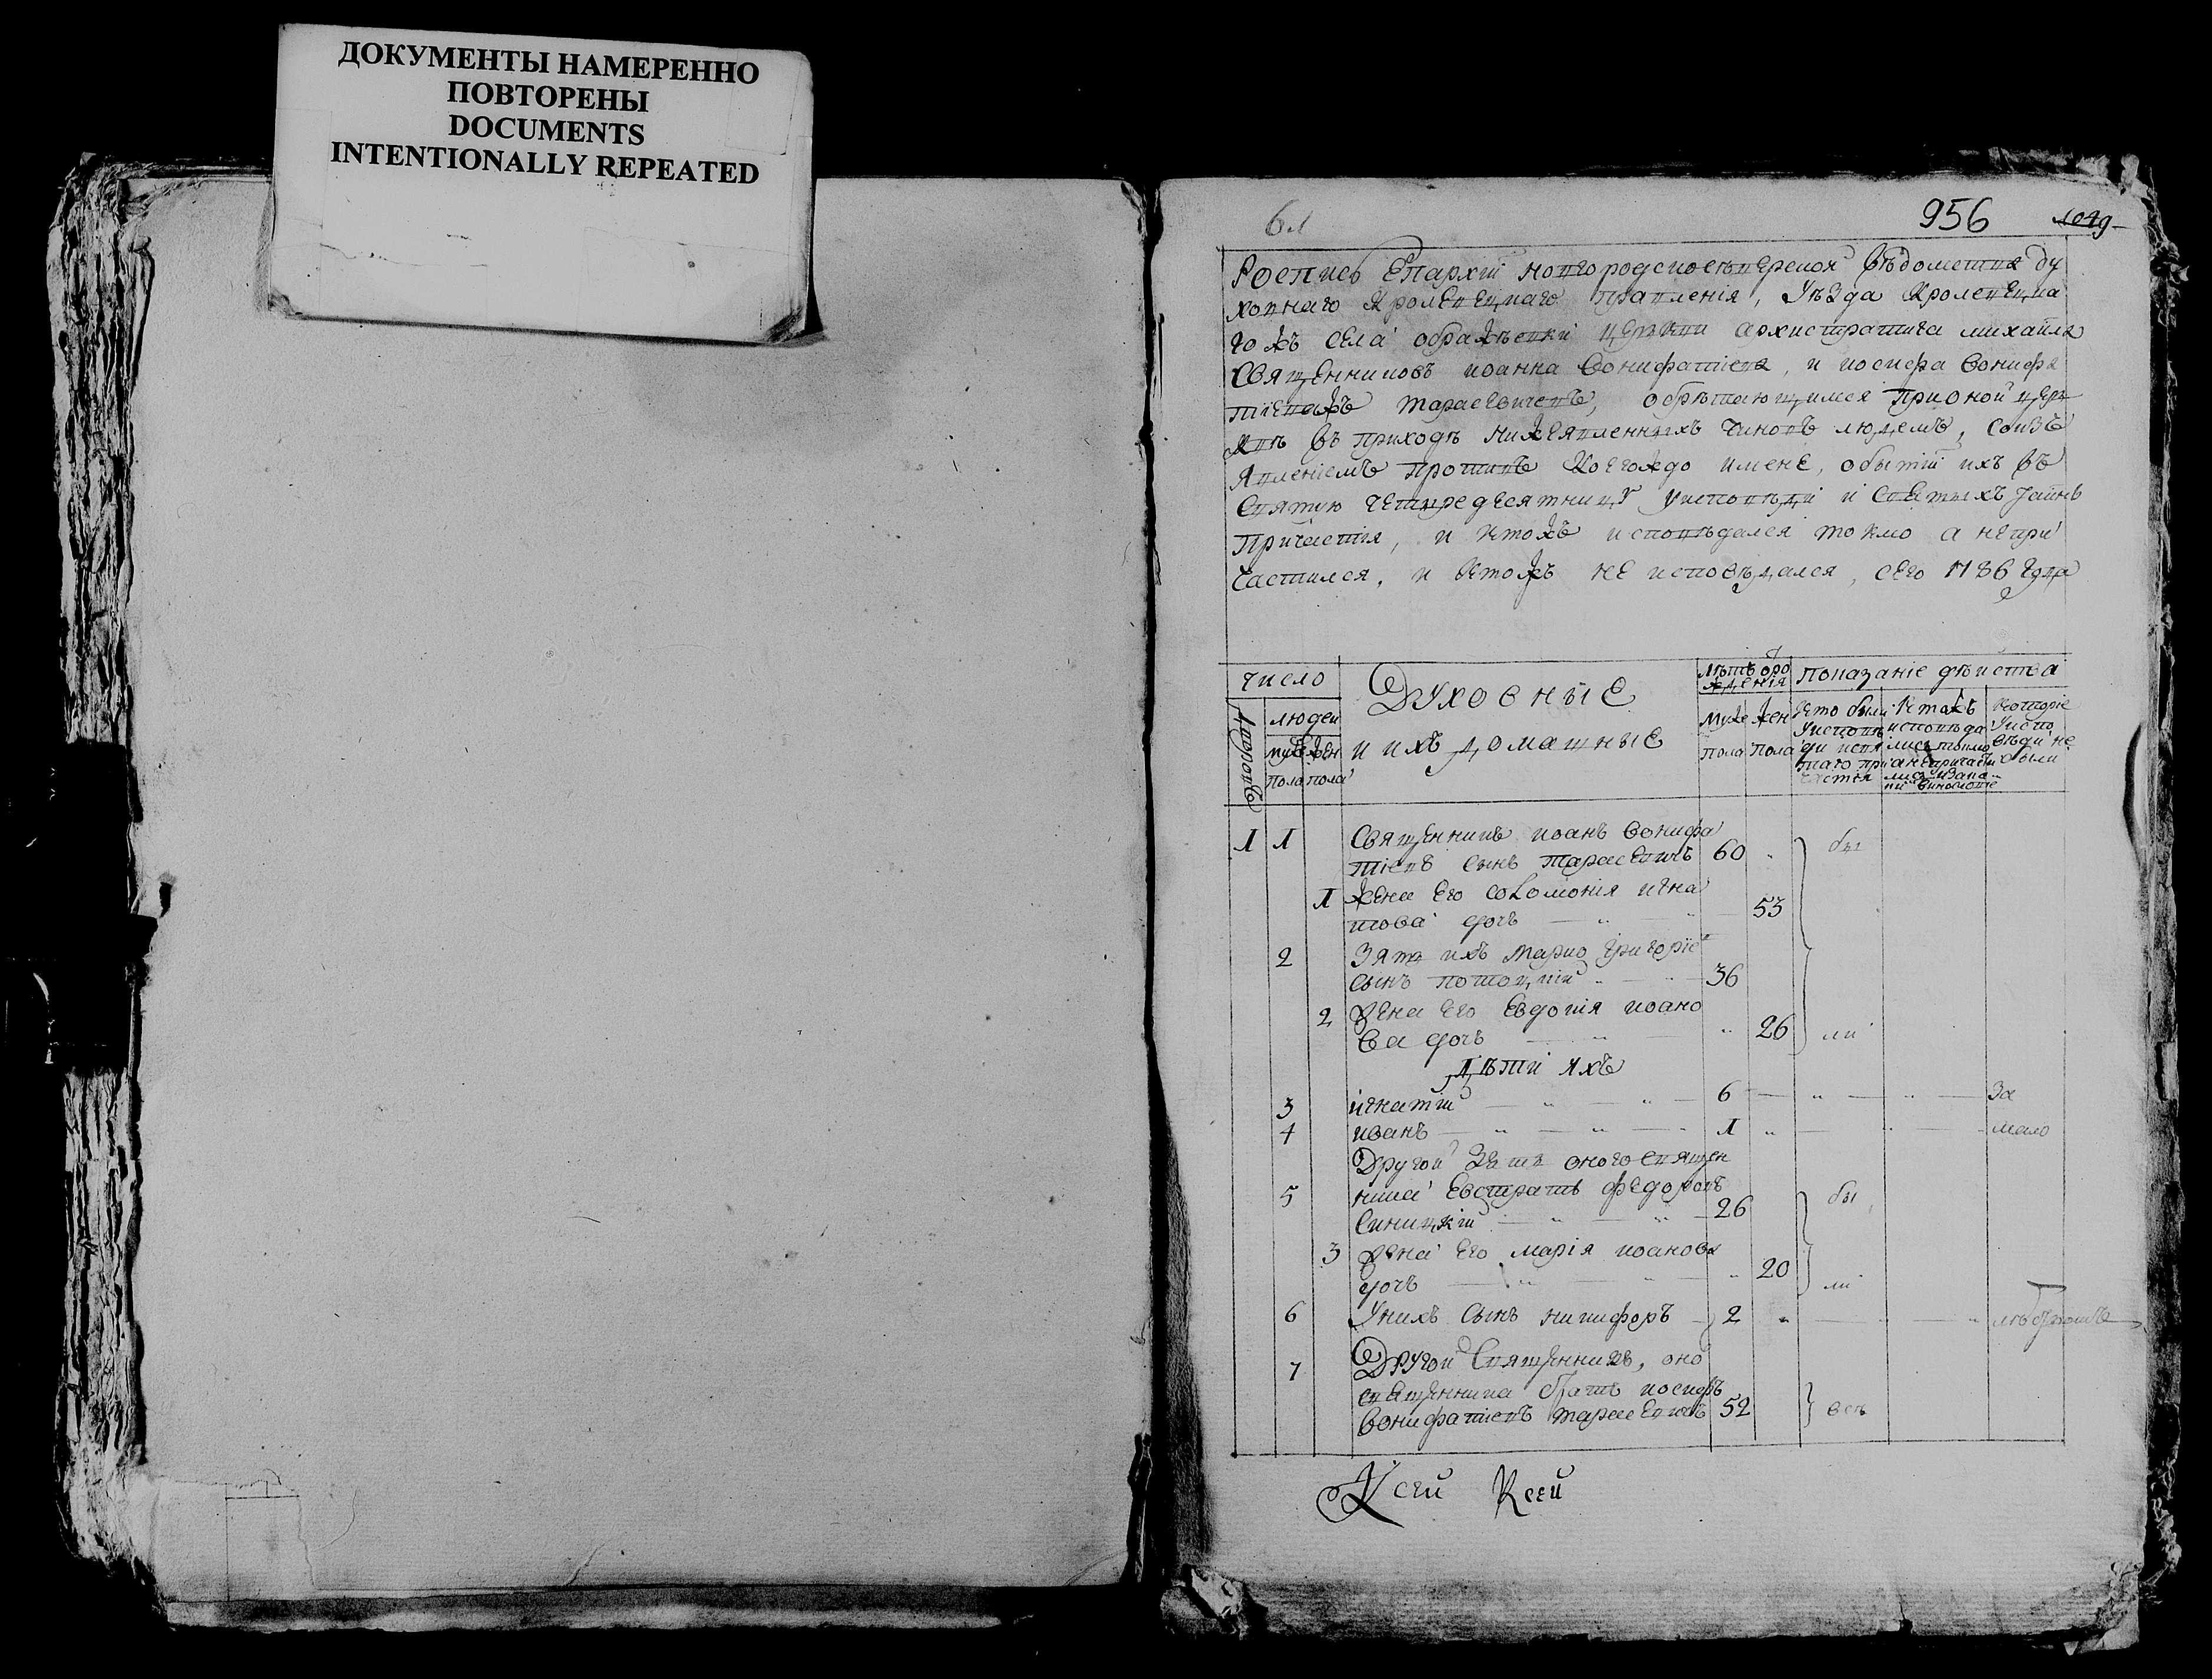 ДОКУМЕНТЫ НАМЕРЕННО
ПОВТОРЕНЫ
DOCUMENTS
INTENTIONALLY REPEATED
956
Роспись Епархіи новгородскосѣверской вѣдомства ду
ховнаго Кролевецкаго правленія, уѣзда Кролевецка
гожъ села ображѣевки церкви архистратига михаила
Священниковъ иоанна Вонифатіева, и иосифа Вонифа
тіевахъ тарасевичевъ, обрѣтающимся прионой цер
квѣ въ приходѣ нижеявленныхъ чиновъ людемъ, соизъ
явленіемъ противъ коегождо имене, обытіи ихъ въ
святую четиредесятницу уисповѣди и святыхъ таинъ
причастія, и ктожъ исповѣдался токмо а непри
частился, и ктожъ не исповѣдался, сего 1786 года
число
Духовные
Лѣтъ оро
жденія
показаніе дѣиства
Дворовъ
людеи
муже
пола
жен
пола
и ихъ домашные
муже
пола
жен
пола
кто были
уисповѣ
ди исвя
таго при
частія
ктожъ
исповѣда
лись токмо
анепричасти
лись
которіе
уиспо
вѣди не
были
1 1 Священникъ иоанъ Вонифа
тіевъ сынъ тарасевичъ 60 бы
1 жена его соломонія игна
това дочь 53
2 Зять ихъ марко григоріе
сынъ потоцкій 36
2 жена его евдокія иоано
ва дочь 26 ли
дѣти ихъ
3 игнатій 6 за
4 иванъ 1 мало
Другой зять оного священ
5 ника евстратъ федоровъ бы
синицкій 26
3 жена его марія иоанова
дочь 20 ли
6 Унихъ сынъ никифоръ 2 лѣтством
7 Другой священникъ, оно
священника братъ иосифъ
вонифатіевъ тарасевичъ 52
Ксей Ксей